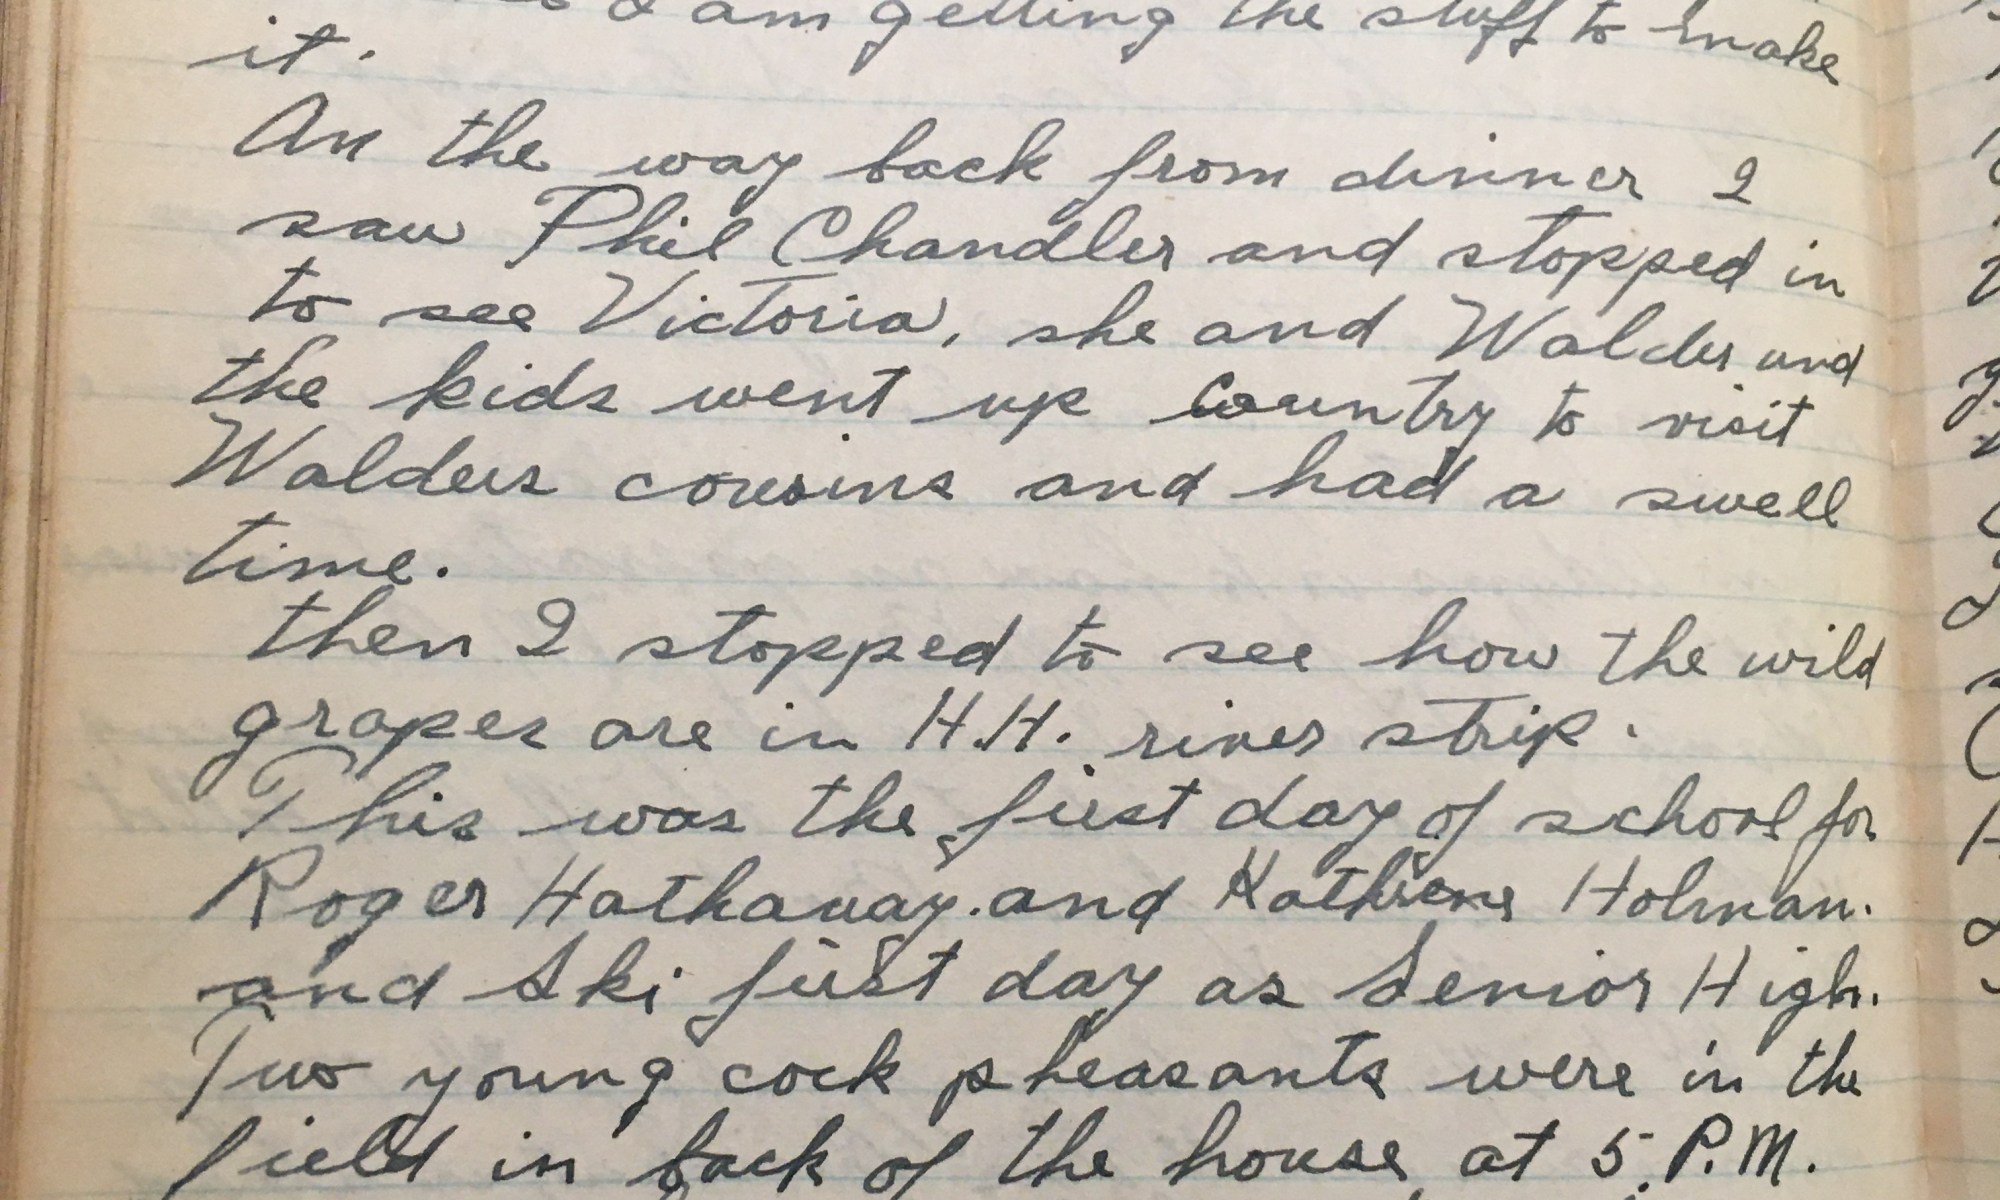 I am getting the stuff to make
it.
On the way back from dinner I
saw Phil Chandler and stopped in
to see Victoria, she and Walder and
the kids went up country to visit
Walders cousins and had a swell
time.
then I stopped to see how the wild
grapes are in H.H. river strip.
This was the first day of school for
Roger Hathaway. and Holman.
and Ski first day as Senior High.
Two young cock pheasants were in the
field in back of the house at 5 P.M.